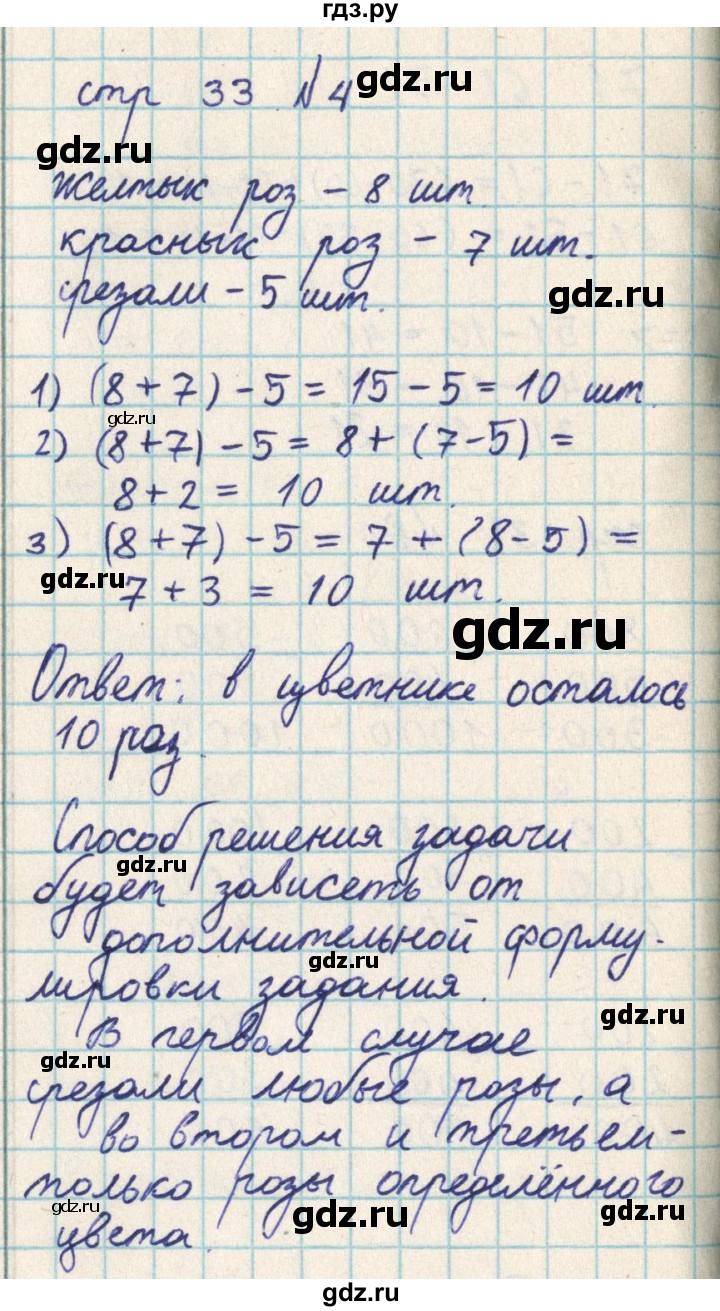 гдз.ру
стр 33 №4 gdz.ru
gdz.ru
Желтых роз - 8 шт.
красных роз - 7 шт.
срезали - 5 шт. gdz.ru
1) (8+7)-5=15-5=10 шт.
gdz.ru
2) (8+7)-5= 8+(7-5)=
8+2= 10 шт.
3) (8+7)-5=7+(8-5)=
gdz.ru
7+3= 10 шт.
gdz.ru
Ответ: в цветнике осталось
10 роз.
Способ решения задачи
gdz.ru
будет зависеть от
дополнительной форму-
gdz.ru
лировки задания.
gdz.ru
В первом случае
gdz.ru
срезали любые розы, а
во втором и третьем-
только розы определённого
gdz.ru gdz.ru gdz.ru
цвета.
gdz.ru